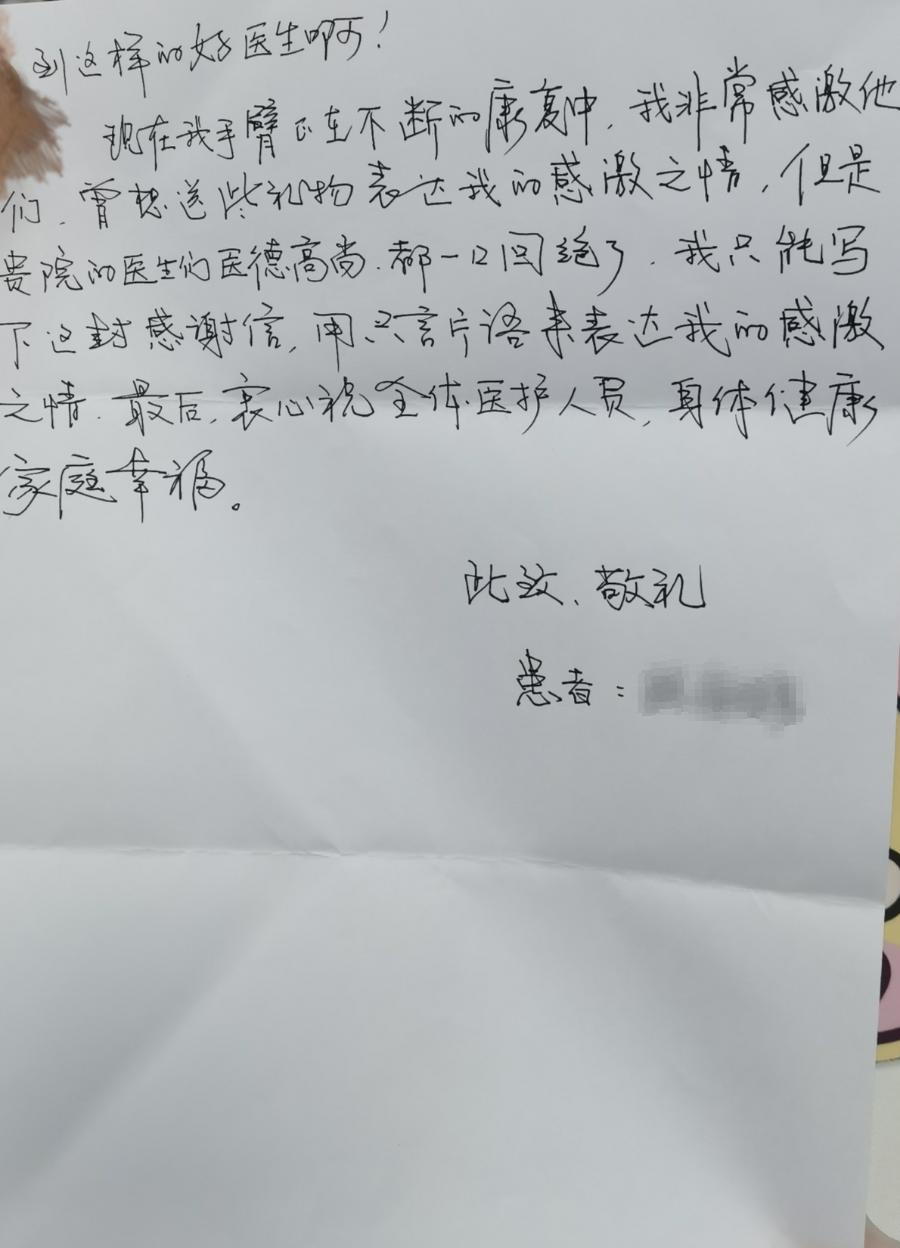 到这样的好医生啊!
现在我手臂正在不断的康复中，我非常感激他
们，曾想送些礼物表达我的感激之情，但是
贵院的医生们医德高尚．都一口回绝了．我只能写
下这封感谢信，用只言片语来表达我的感激
之情．最后，衷心祝全体医护人员，身体健康
家庭幸福。
此致、敬礼
患者：